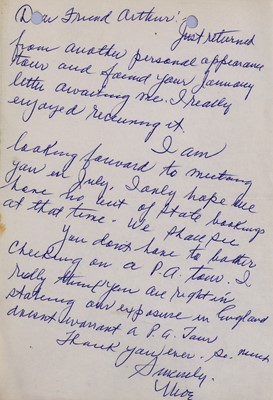 Dear Friend Arthur:
Just returned
from another personal appearance
tour and found your January
letter awaiting me. I really
enjoyed receiving it.
I am
looking forward to meeting
you in July. I only hope we
have no out of state bookings
at that time - We shall see
You don't have to bother
checking on a P.A. tour. I
really think you are right in
stating our exposure in England
doesn't warrant a P.A. Tour
Thank you ever so much
Sincerely,
Moe